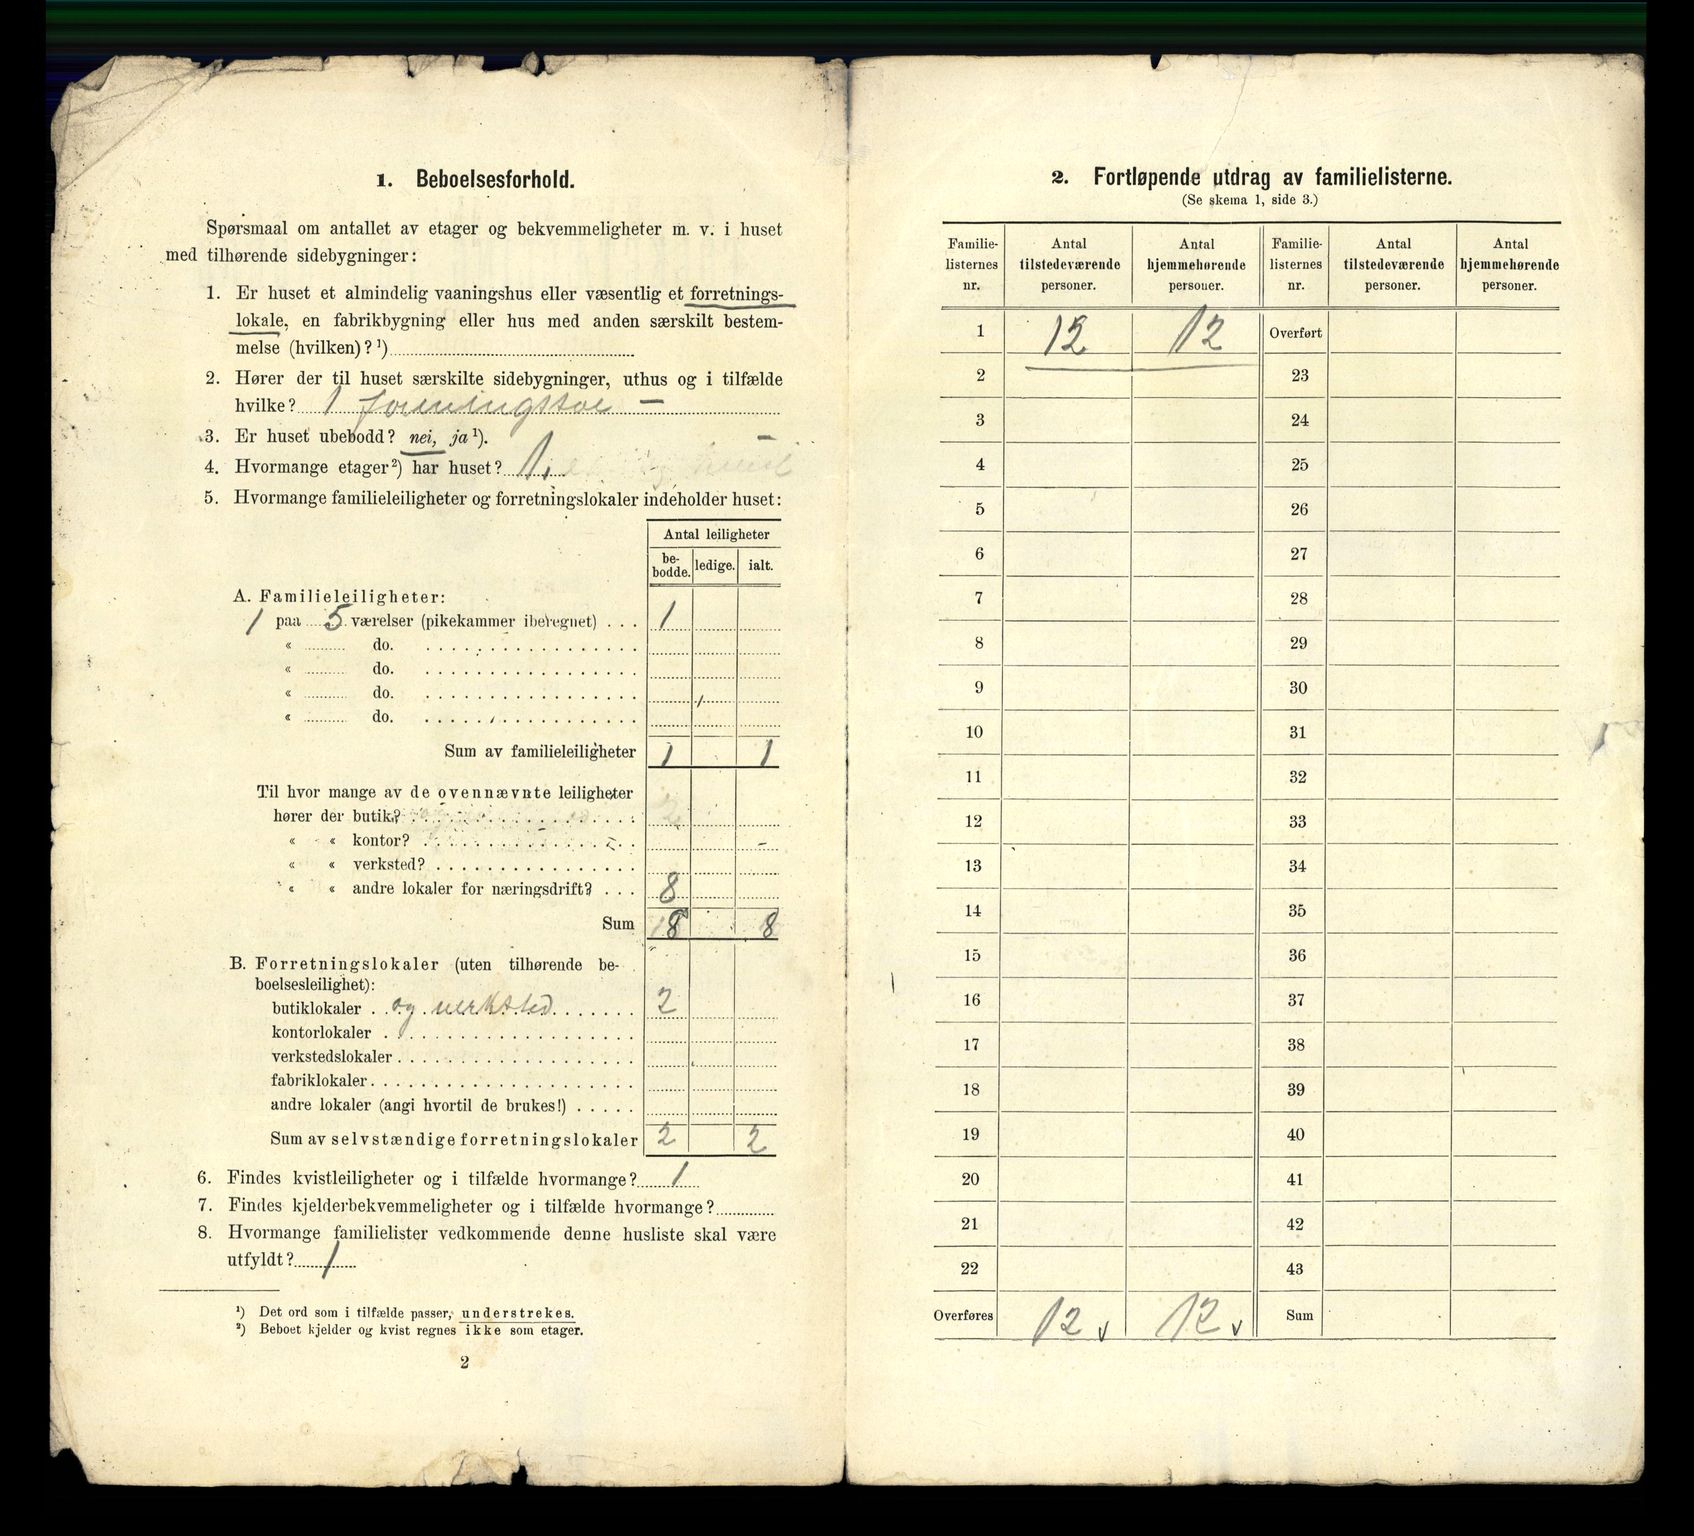 1. Beboelsesforhold.
Spørsmaal om antallet av etager og bekvemmeligheter m. v. i huset
med tilhørende sidebygninger:
1. Er huset et almindelig vaaningshus eller væsentlig et forretnings-
lokale, en fabrikbygning eller hus med anden særskilt bestem-
melse (hvilken)? ¹)
2. Hører der til huset særskilte sidebygninger, uthus og i tilfælde
hvilke? 1 –
3. Er huset ubebodd? nei, ja ¹). –
4. Hvormange etager ²) har huset? 1.
5. Hvormange familieleiligheter og forretningslokaler indeholder huset:
Antal leiligheter
be-
bodde. ledige. ialt.
A. Familieleiligheter:
1 paa 5 værelser (pikekammer iberegnet) . . . 1
« do.
« do.
« do.
« do.
Sum av familieleiligheter 1 1
Til hvor mange av de ovennævnte leiligheter
hører der butik? 2
« « kontor?
« « verksted?
« « andre lokaler for næringsdrift? . . . 8
Sum 8 8
B. Forretningslokaler (uten tilhørende be-
boelsesleilighet):
butiklokaler og verksted 2
kontorlokaler
verkstedslokaler
fabriklokaler
andre lokaler (angi hvortil de brukes!)
Sum av selvstændige forretningslokaler 2 2
6. Findes kvistleiligheter og i tilfælde hvormange? 1
7. Findes kjelderbekvemmeligheter og i tilfælde hvormange?
8. Hvormange familielister vedkommende denne husliste skal være
utfyldt? 1
¹) Det ord som i tilfælde passer, understrekes.
²) Beboet kjelder og kvist regnes ikke som etager.
2
2. Fortløpende utdrag av familielisterne.
(Se skema 1, side 3.)
Familie- Antal Antal Familie- Antal Antal
listernes tilstedeværende hjemmehørende listernes tilstedeværende hjemmehørende
nr. personer. personer. nr. personer. personer.
1 12 12 Overført
2 23
3 24
4 25
5 26
6 27
7 28
8 29
9 30
10 31
11 32
12 33
13 34
14 35
15 36
16 37
17 38
18 39
19 40
20 41
21 42
22 43
Overføres 12 v 12 v Sum